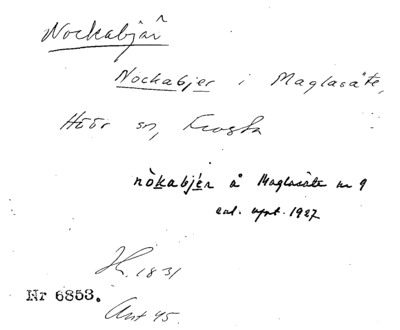 Nockabjär
Nockabjer i Maglasäte,
Höör sn, Frosta
nòkabjér å Maglasäte nr 9
enl. uppt. 1927
1831
Nr 6853.
Ant 45.